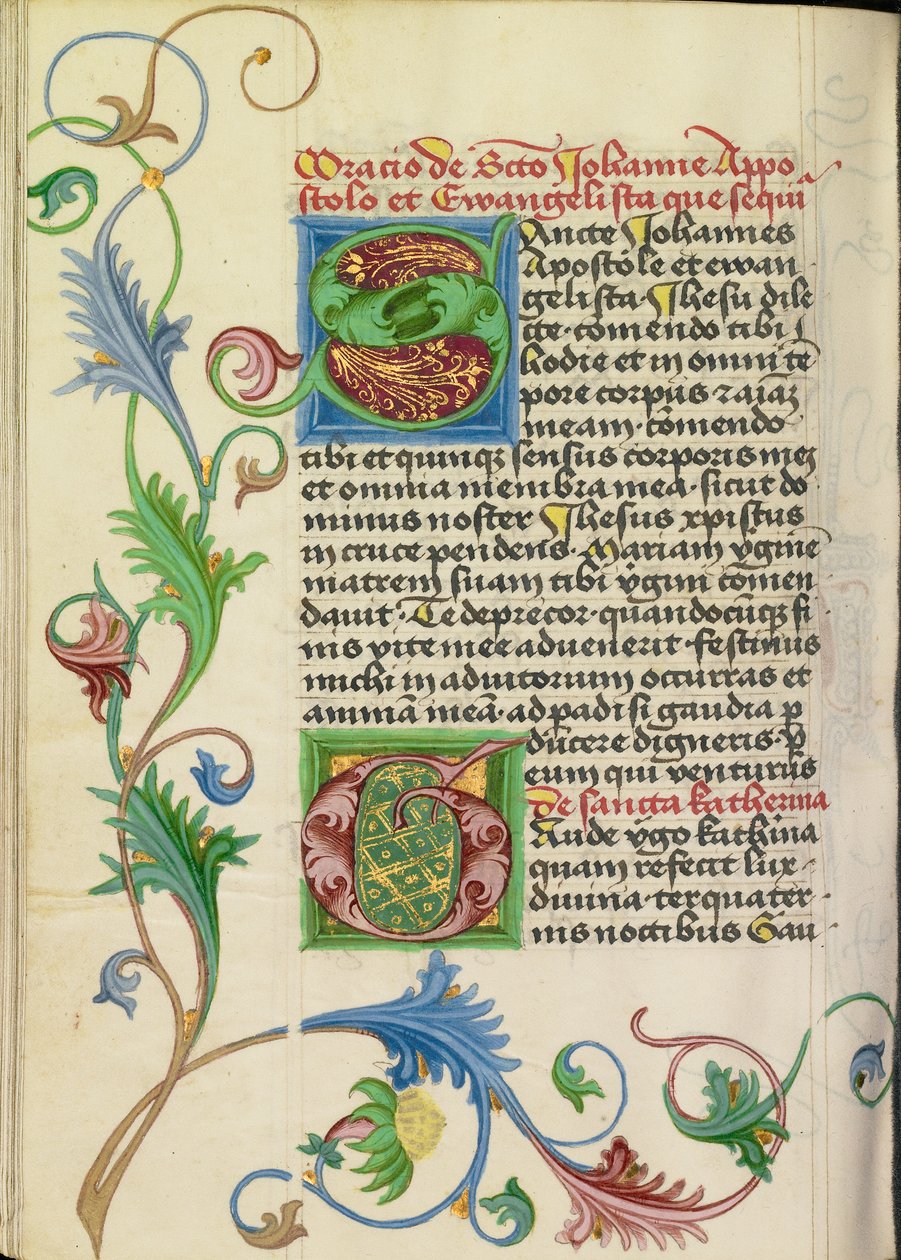 Oracio de Scto Johanne Appo
stolo et Ewangelista que sequit̃
SAncte Johannes
Apostole et ewan
gelista · Jhesu dile
cte · co̅mendo tibi
hodie et in omni te̅
pore corpus ⁊ aia̅ʒ
meam · co̅mendo
tibi et quinqʒ sensus corporis mei
et omnia membra mea · sicut do
minus noster Jhesus xp̅istus
in cruce pendens · Mariam v̅gine̅
matrem suam tibi v̅gini co̅men
davit · Te deprecor · quandocu̅qʒ fi
nis vite mee advenerit · festinus
michi in adiutorium occurras et
anima̅ mea̅ · ad padisi gaudia p
du̅cere digneris · P̲
eum qui venturus
De sancta katherina
GAude v̅go kath̅ina
quam refecit lux ·
divina · ter quater ·
nis noctibus Gau